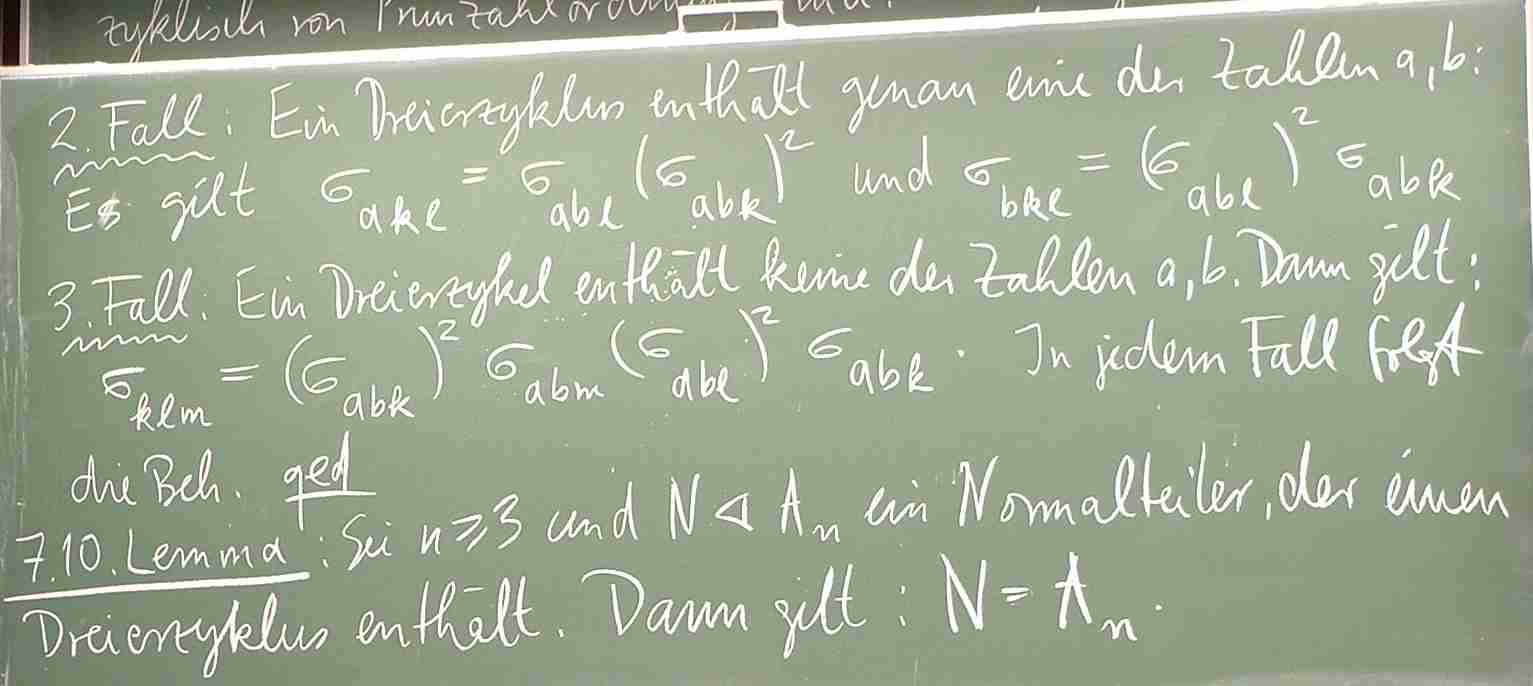 zyklisch von Primzahlordnung
2. Fall: Ein Dreierzyklus enthält genau eine der Zahlen a, b:
Es gilt σ_{akl} = σ_{abl} (σ_{abk})² und σ_{bkl} = (σ_{abl})² σ_{abk}
3. Fall: Ein Dreierzykel enthält keine der Zahlen a, b. Dann gilt:
σ_{klm} = (σ_{abk})² σ_{abm} (σ_{abl})² σ_{abk}. In jedem Fall folgt
die Beh. qed
7.10. Lemma: Sei n ≥ 3 und N ⊲ A_n ein Normalteiler, der einen
Dreierzyklus enthält. Dann gilt: N = A_n.